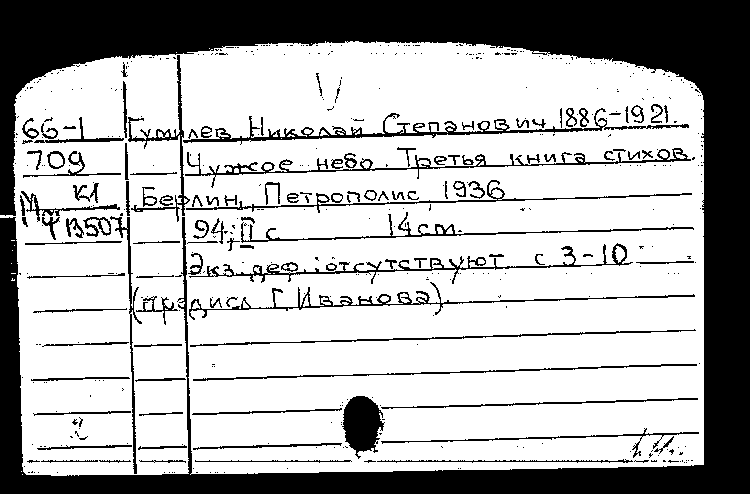 66-1 Гумилев, Николай Степанович, 1886-1921.
709 Чужое небо. Третья книга стихов.
К1 Берлин, Петрополис, 1936
Мф В507 94; II с 14 см.
Экз. деф.: отсутствуют с 3-10
(предисл Г. Иванова).